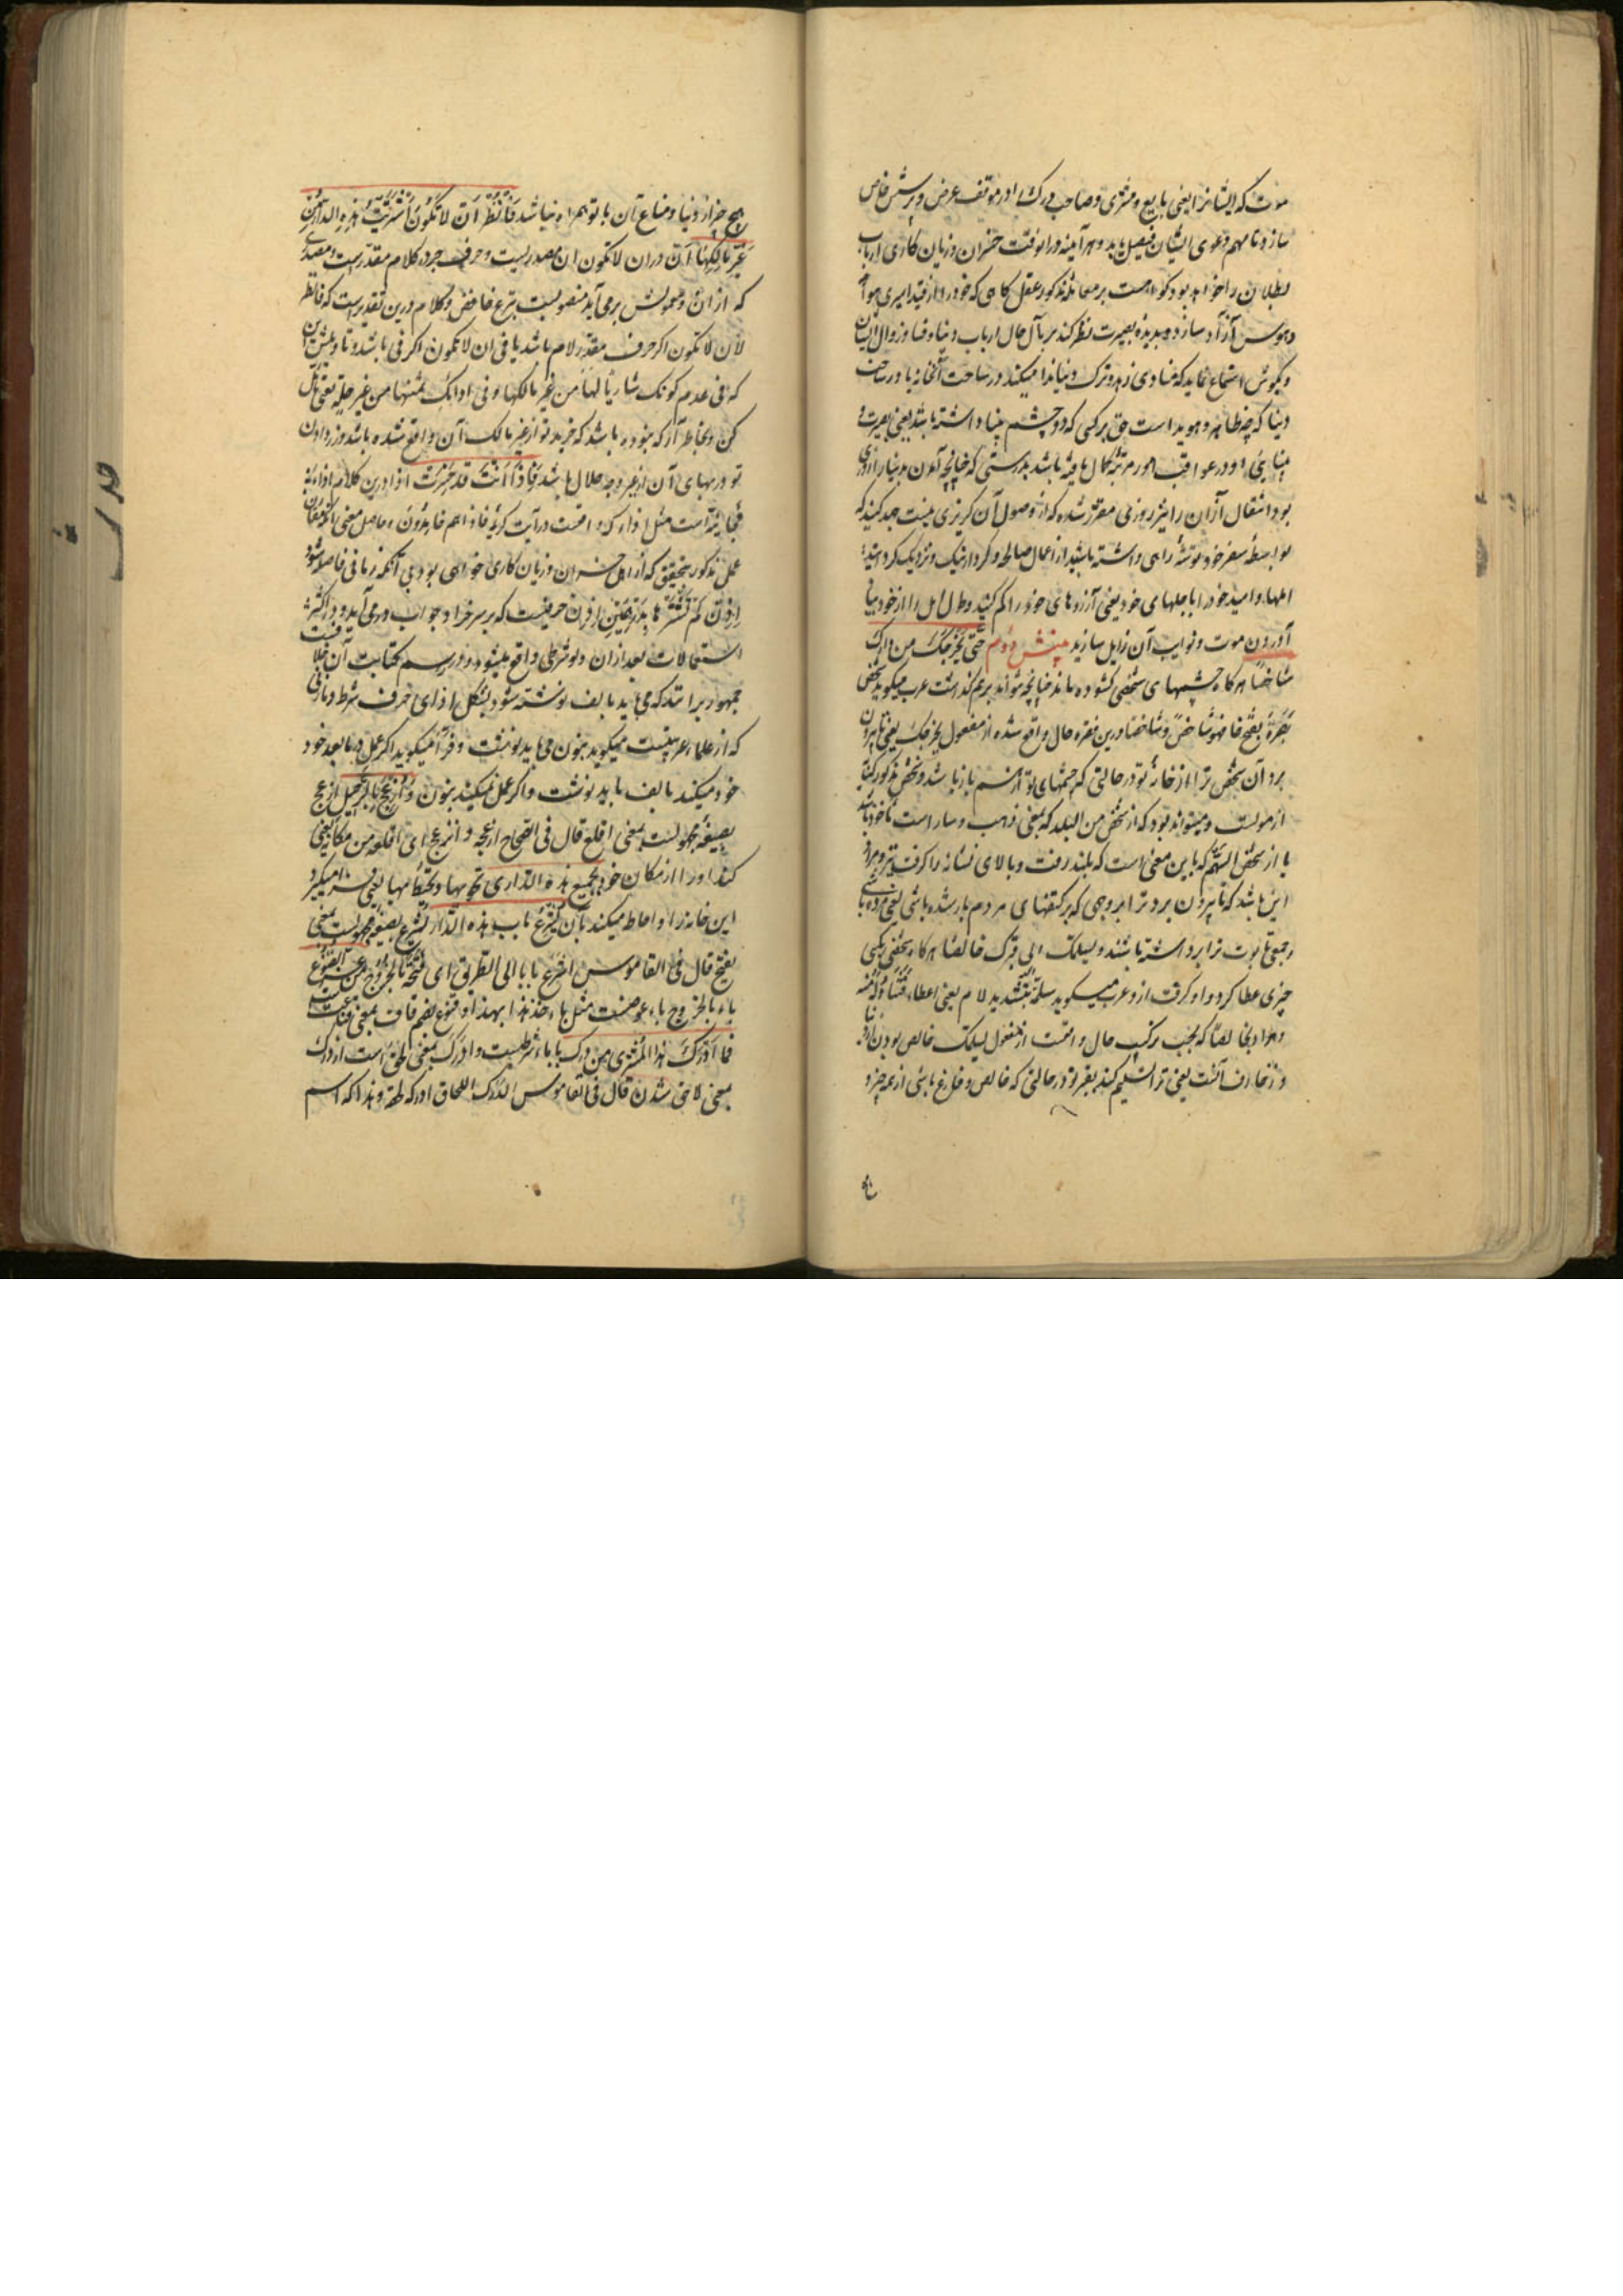 موت که ایشانرا یعنی بایع و مشتری و صاحب درک را در موقف عرض و پرسش خاص
سازد تا مهم دعوی ایشان فیصل یابد و هر آینه در انوقت خسران و زیان کاری ارباب
بطلان را خواهد بود کواهست بر معامله مذکور عقل کاهی که خود را از قید اسیری هوا
و هوس آزاد سازد و بدیده بصیرت نظر کند بر مآل حال ارباب دنیا و فنا و زوال ایشان
و بکوش استماع نماید که منادی زهد و ترک دنیا ندا میکند در ساحت آنخانه یا در ساحت
دنیا که چه ظاهر و هویداست حق بر کسی که دو چشم بینا داشته باشد یعنی بصیرت و
بینایی او در عواقب امور مرتبه کمال یافته باشد بدرستی که چنانچه آمدن بدنیا را روزی
بود انتقال از آن را نیز روزی مقرر شده که از وصول آن کریزی نیست جهد کنید که
بواسطه سفر خود توشه راهی داشته باشید از اعمال صالحه و کردار نیک و نزدیک کردانید
املها و امید خود را با اجلهای خود یعنی آرزوهای خود را کم کنید و طول امل را از خود بیاد
آوردن موت و نوایب آن زایل سازید منش دوم حتی یخرجک من دارک
شاخصا هرکاه چشمهای شخصی کشوده ماند چنانچه نتواند برهم کذاشت عرب میکوید شخص
بصره بفتح خا فهو شاخص و شاخصا درین فقره حال واقع شده از مفعول یخرجک یعنی تا بیرون
برد آن شخص ترا از خانه تو در حالتی که چشمهای تو از هم باز باشد و شخص مذکور کنایه
از موتست و میتواند بود که از شخص من البلد که بمعنی ذهب و سار است ماخوذ باشد
یا از شخص السهم که باین معنی است که بلند رفت و بالای نشانه را کرفت تیر و مراد
این باشد که تا بیرون برد ترا بروجهی که بر کتفهای مردم بار شده باشی یعنی مرده باشی
و جمعی تابوت ترا برداشته باشند و یسلمک الی قبرک خالصا هرکاه شخصی بکسی
چیزی عطا کرد و او کرفت از و عرب میکوید سلمه بتشدید لام یعنی اعطاه فتناوله منه
و مراد بخالصا که بحسب ترکیب حال واقعست از مفعول یسلمک خالص بودن از دنیا
و زخارف آنست یعنی ترا تسلیم کند بقبر تو در حالتی که خالص و فارغ باشی از همه چیز و
هیچ چیز از دنیا و متاع آن با تو همراه نباشد فانظر ان لا تکون اشتریت هذه الدار من
غیر مالکها ان در ان لا تکون ان مصدریست و حرف جر در کلام مقدر است و مصدری
که از ان و معمولش برمی آید منصوبست بنزع خافض و کلام درین تقدیر است که فانظر
لان لا تکون اگر حرف مقدر لام باشد یا فی ان لا تکون اگر فی باشد و تاویلش این
که فی عدم کونک شاریا لها من غیر مالکها و فی ادائک ثمنها من غیر حله یعنی تامل
کن و بخاطر آر که نبوده باشد که خرید تو از غیر مالک آن واقع شده باشد و زر دادن
تو در بهای آن از غیر وجه حلال باشد فاذا انت قد خسرت اذا درین کلام اذاء
فجائیه است مثل اذاء که واقعست در آیت کریمه فاذاهم خامدون و حاصل معنی آنکه
عمل مذکور بتحقیق که از اهل خسران و زیان کاری خواهی بود بی آنکه زمانی فاصله شود
اذن لم تشتر ها بدرهمین اذن حرفیست که بر سر جزا و جواب درمی آید و در اکثر
استعمالات بعد از ان و لو شرطی واقع میشود و در رسم کتابت آن خلافست
جمهور برانند که می باید بالف نوشته شود بشکل اذای حرف شرط و مازنی
که از علماء عربیتست میکوید بنون می باید نوشت و فرا میکوید اکر عمل در ما بعد خود
خود میکند بالف باید نوشت و اکر عمل نمیکند بنون و ازعج بالرحیل ازعج
بصیغه مجهولست بمعنی اقلع قال فی الصحاح ازعجه و انزعج ای اقلعه من مکانه یعنی
کند او را از مکان خود بجمیع هذه الدار
این خانه را و احاطه میکند بآن یشرع باب هذه الدار یشرع بصیغه مجهولست بمعنی
یفتح قال فی القاموس اشرع بابا الی الطریق ای فتحه بالخروج من
باء بالخروج باء عوضست مثل باء خذ هذا بهذا و قنوع بضم قاف بمعنی
فما ادرک هذا المشتری من درک با باء شرطیست و ادرک بمعنی لحق است از درک
بمعنی لاحق شدن قال فی القاموس الدرک اللحاق ادرکه لحقه و هذا که اسم